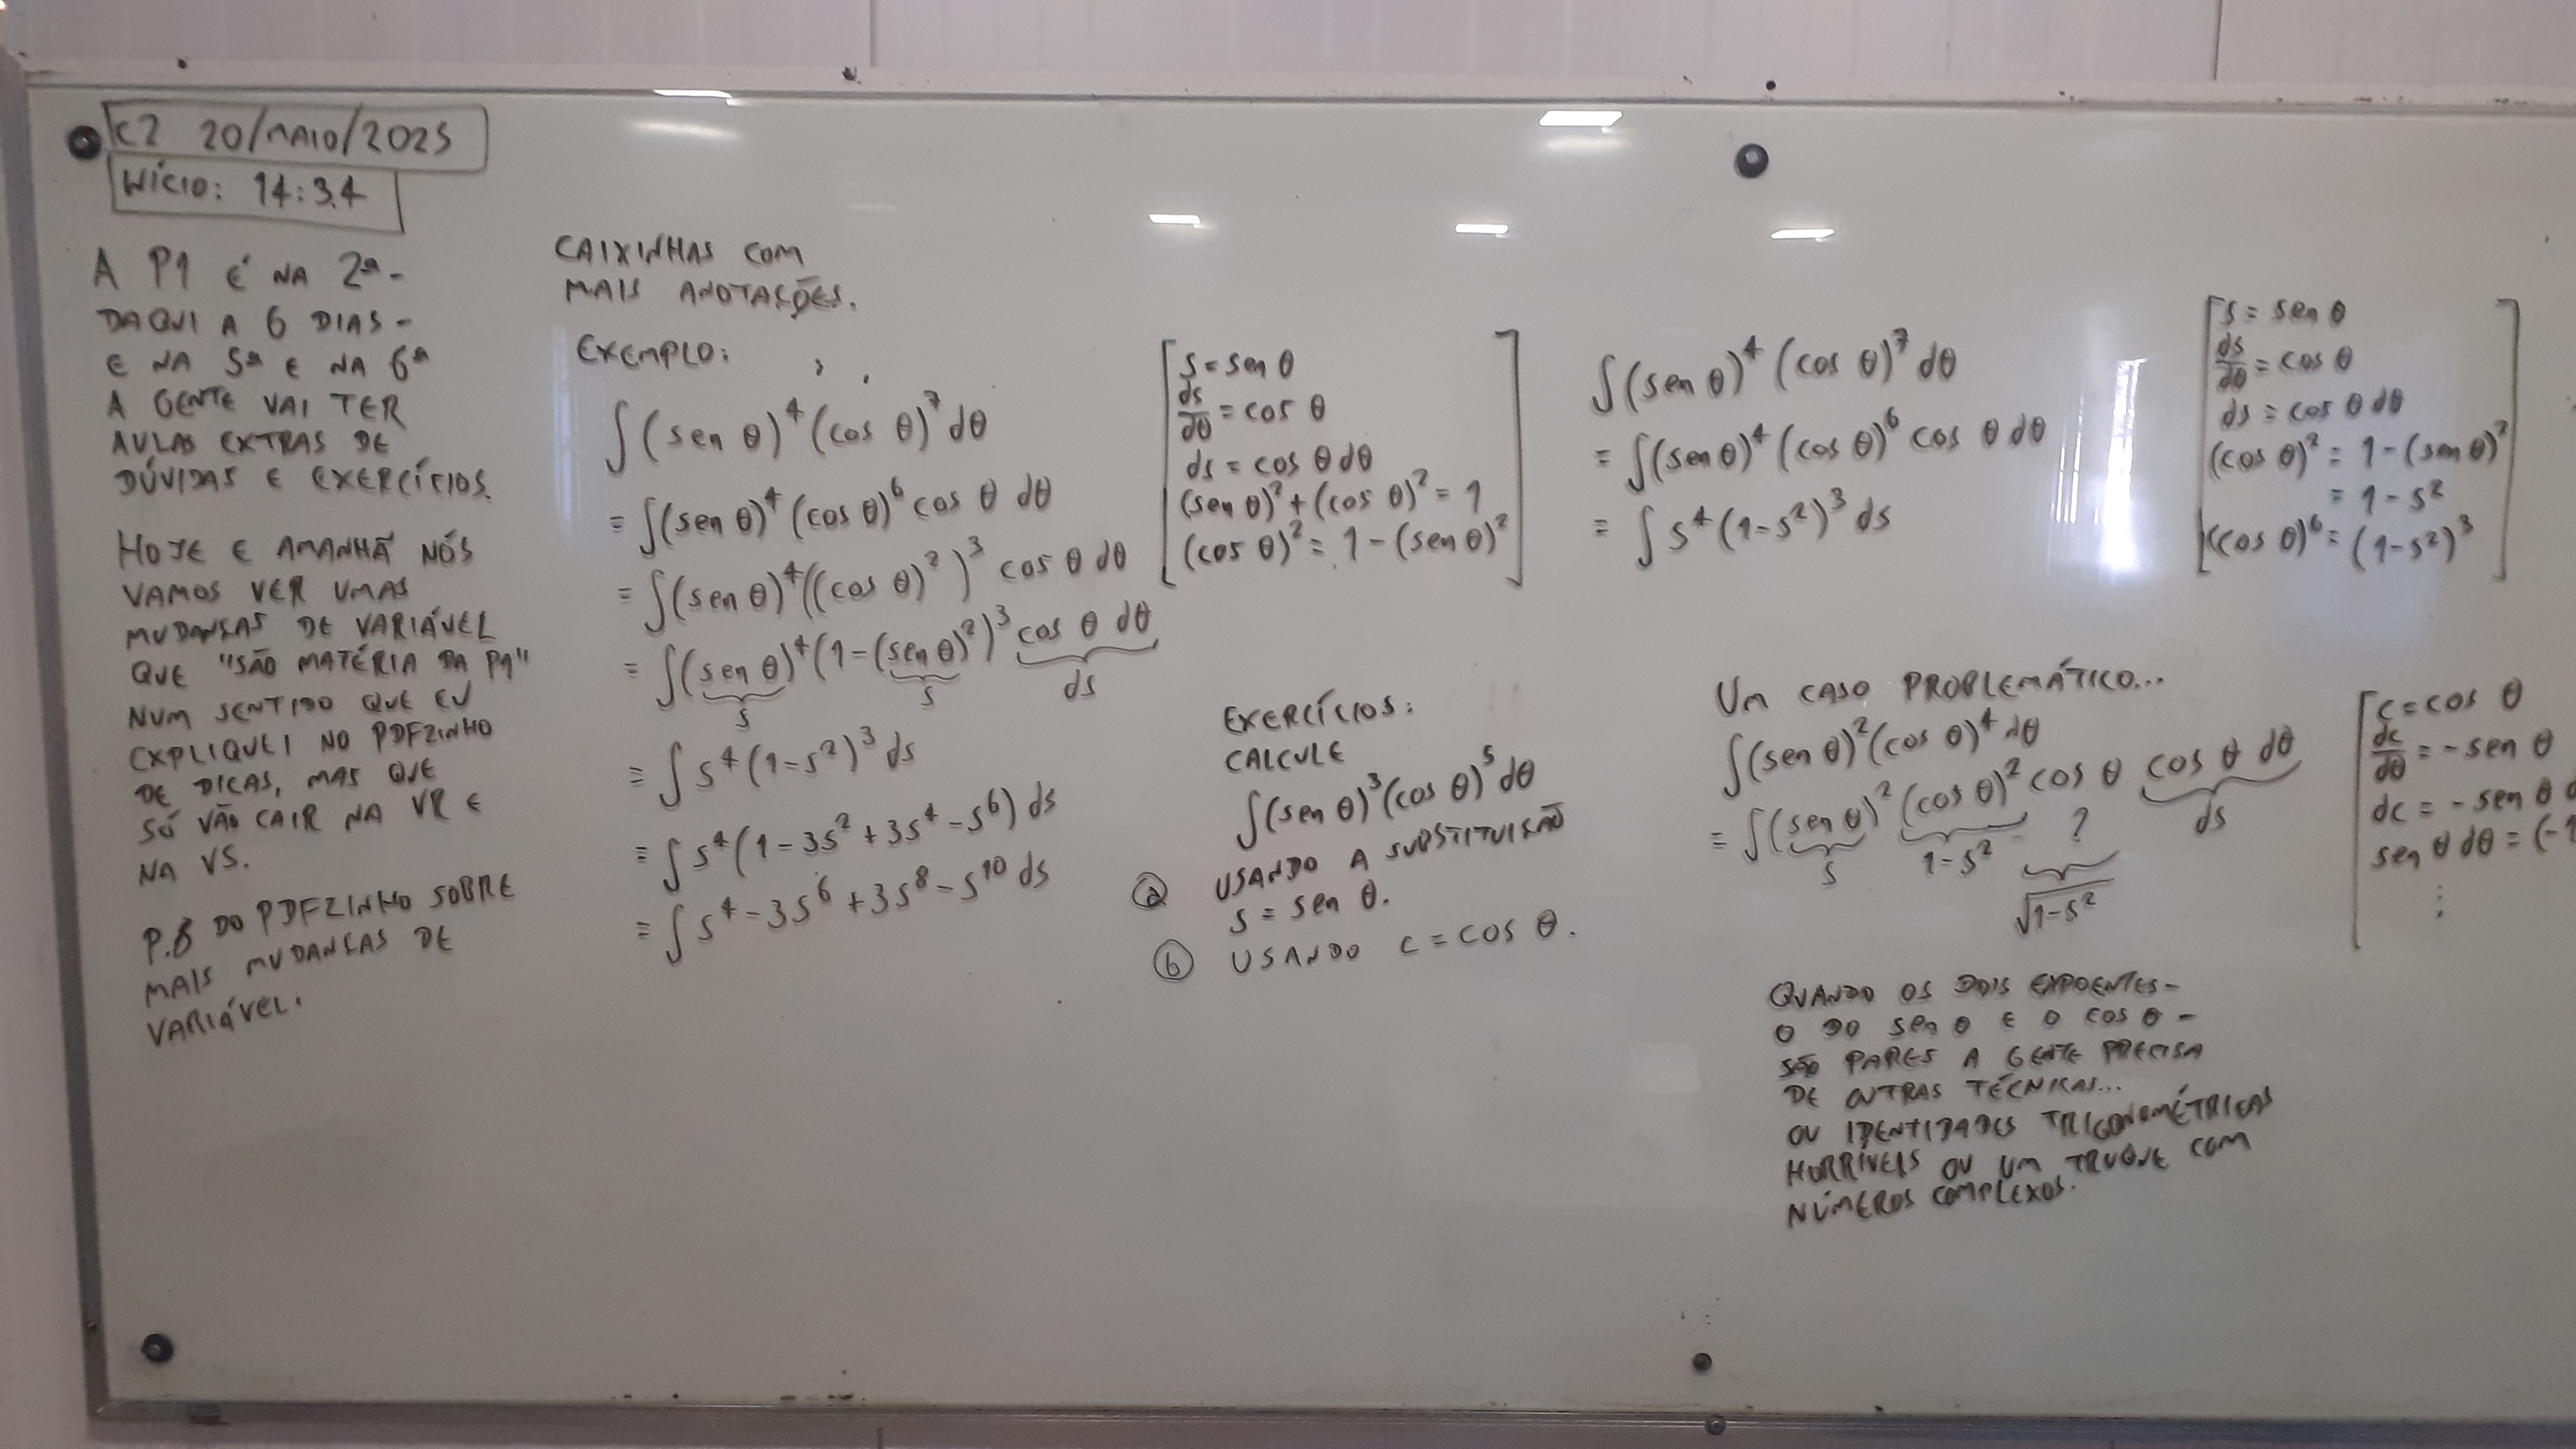 C2 20/MAIO/2025
INÍCIO: 14:34
A P1 É NA 2ª -
DAQUI A 6 DIAS -
E NA 5ª E NA 6ª
A GENTE VAI TER
AULAS EXTRAS DE
DÚVIDAS E EXERCÍCIOS.
HOJE E AMANHÃ NÓS
VAMOS VER UMAS
MUDANÇAS DE VARIÁVEL
QUE "SÃO MATÉRIA DA P1"
NUM SENTIDO QUE EU
EXPLIQUEI NO PDFZINHO
DE DICAS, MAS QUE
SÓ VÃO CAIR NA VR E
NA VS.
P.8 DO PDFZINHO SOBRE
MAIS MUDANÇAS DE
VARIÁVEL.
CAIXINHAS COM
MAIS ANOTAÇÕES.
EXEMPLO:
∫(sen θ)⁴(cos θ)⁷ dθ
= ∫(sen θ)⁴(cos θ)⁶ cos θ dθ
= ∫(sen θ)⁴((cos θ)²)³ cos θ dθ
= ∫(sen θ)⁴(1-(sen θ)²)³ cos θ dθ
s s ds
= ∫ s⁴(1-s²)³ ds
= ∫ s⁴(1-3s²+3s⁴-s⁶) ds
= ∫ s⁴-3s⁶+3s⁸-s¹⁰ ds
s = sen θ
ds/dθ = cos θ
ds = cos θ dθ
(sen θ)²+(cos θ)² = 1
(cos θ)² = 1-(sen θ)²
EXERCÍCIOS:
CALCULE
∫(sen θ)³(cos θ)⁵ dθ
a USANDO A SUBSTITUIÇÃO
s = sen θ.
b USANDO c = cos θ.
∫(sen θ)⁴(cos θ)⁷ dθ
= ∫(sen θ)⁴(cos θ)⁶ cos θ dθ
= ∫ s⁴(1-s²)³ ds
s = sen θ
ds/dθ = cos θ
ds = cos θ dθ
(cos θ)² = 1-(sen θ)²
= 1-s²
(cos θ)⁶ = (1-s²)³
UM CASO PROBLEMÁTICO...
∫(sen θ)²(cos θ)⁴ dθ
= ∫(sen θ)²(cos θ)² cos θ cos θ dθ
s 1-s² ? ds
√1-s²
c = cos θ
dc/dθ = - sen θ
dc = - sen θ d
sen θ dθ = (-1
⋮
QUANDO OS DOIS EXPOENTES -
O DO sen θ E O cos θ -
SÃO PARES A GENTE PRECISA
DE OUTRAS TÉCNICAS...
OU IDENTIDADES TRIGONOMÉTRICAS
HORRÍVEIS OU UM TRUQUE COM
NÚMEROS COMPLEXOS.